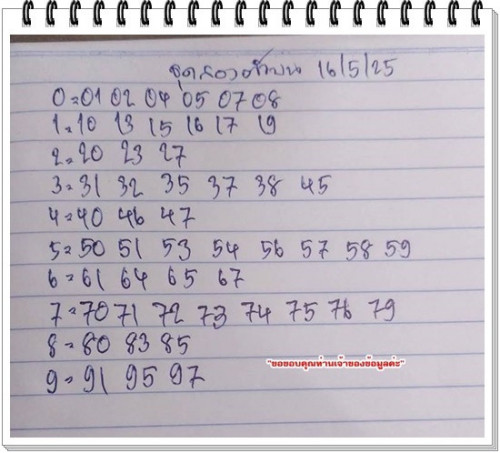 ชุดสองตัวบน 16/5/25
0=01 02 04 05 07 08
1=10 13 15 16 17 19
2=20 23 27
3=31 32 35 37 38 45
4=40 46 47
5=50 51 53 54 56 57 58 59
6=61 64 65 67
7=70 71 72 73 74 75 76 79
8=80 83 85
9=91 95 97
"ขอขอบคุณท่านเจ้าของข้อมูลค่ะ"